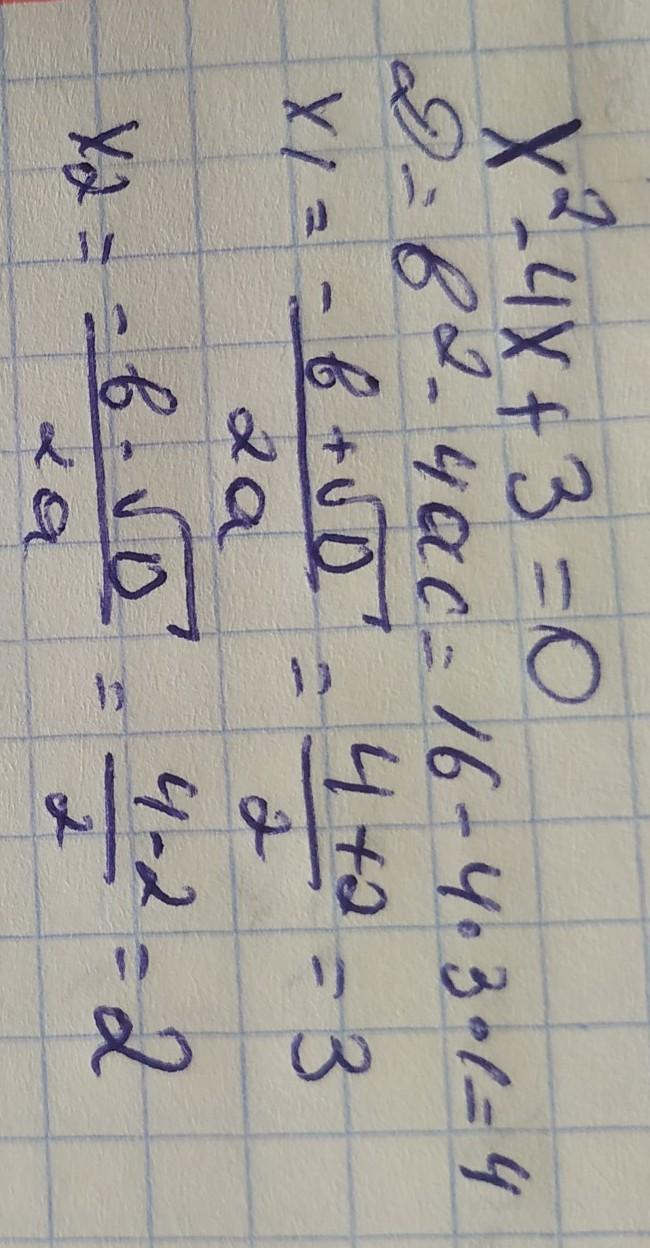 x² - 4x + 3 = 0
D = b² - 4ac = 16 - 4·3·1 = 4
x1 = (-b + √D)/2a = (4+2)/2 = 3
x2 = (-b - √D)/2a = (4-2)/2 = 2